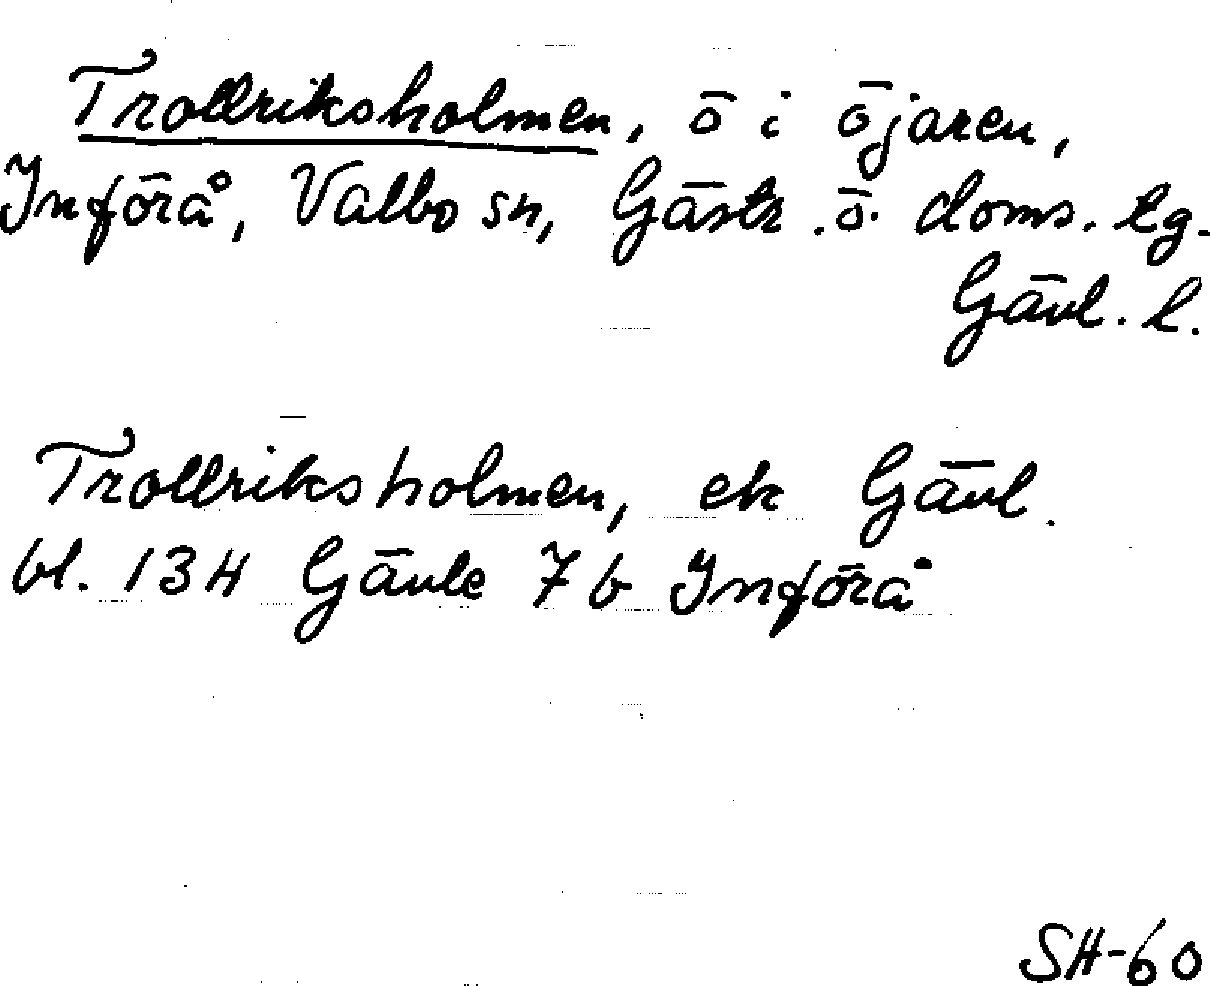 Trollriksholmen, ö i Öjaren,
Införå, Valbo sn, Gästr. ö. doms. lg.
Gävl. l.
Trollriksholmen, ek Gävl.
bl. 13H Gävle 7b Införå
SH-60